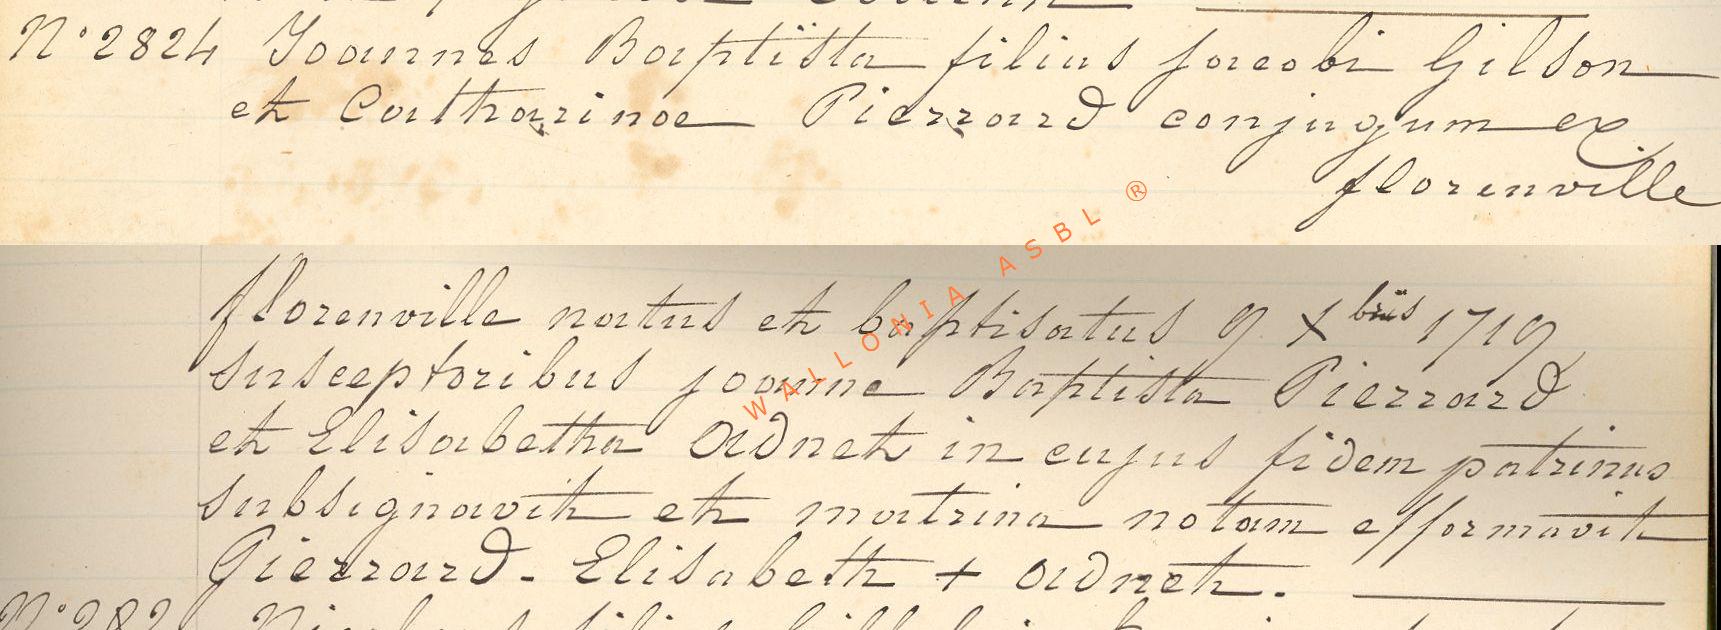 N° 2824 Joannes Baptista filius Jacobi Gilson
et Catharinae Pierrard conjugum ex
florenville
florenville natus et baptisatus 9 Xbris 1719
susceptoribus joanne Baptista Pierrard
et Elisabetha Ordnet in cujus fidem patrinus
subsignavit et matrina notam efformavit
Pierrard - Elisabeth + Ordnet.
WALLONIA ASBL ®